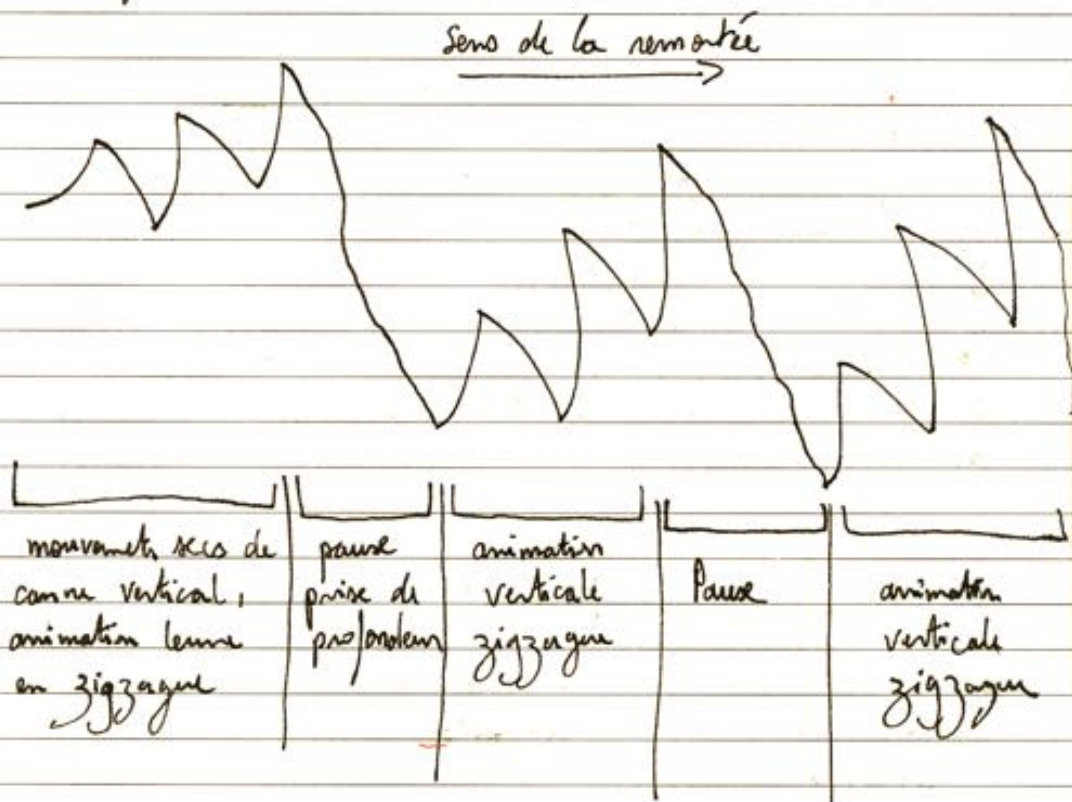 Sens de la remontée
mouvements secs de
canne vertical,
animation leurre
en zigzague
pause
prise de
profondeur
animation
verticale
zigzague
Pause
animation
verticale
zigzague